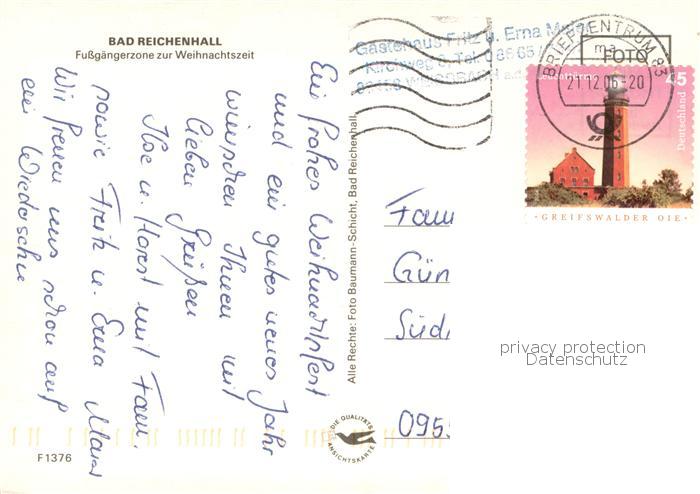 BAD REICHENHALL
Fußgängerzone zur Weihnachtszeit
Ein frohes Weihnachtsfest
und ein gutes neues Jahr
wünschen Ihnen mit
lieben Grüßen
Ilse u. Horst mit Fam.
sowie Fritz u. Erna Maier
Wir freuen uns schon auf
ein Wiedersehn
F1376
Alle Rechte: Foto Baumann-Schicht, Bad Reichenhall
DIE QUALITÄTS
ANSICHTSKARTE
Gästehaus Fritz u. Erna
Kirchweg 6, Tel. 08665/
BRIEFZENTRUM 83
ma
21.12.06-20
FOTO
Leuchttürme
45
Deutschland
GREIFSWALDER OIE
Fam
Gün
Süd
095
privacy protection
Datenschutz